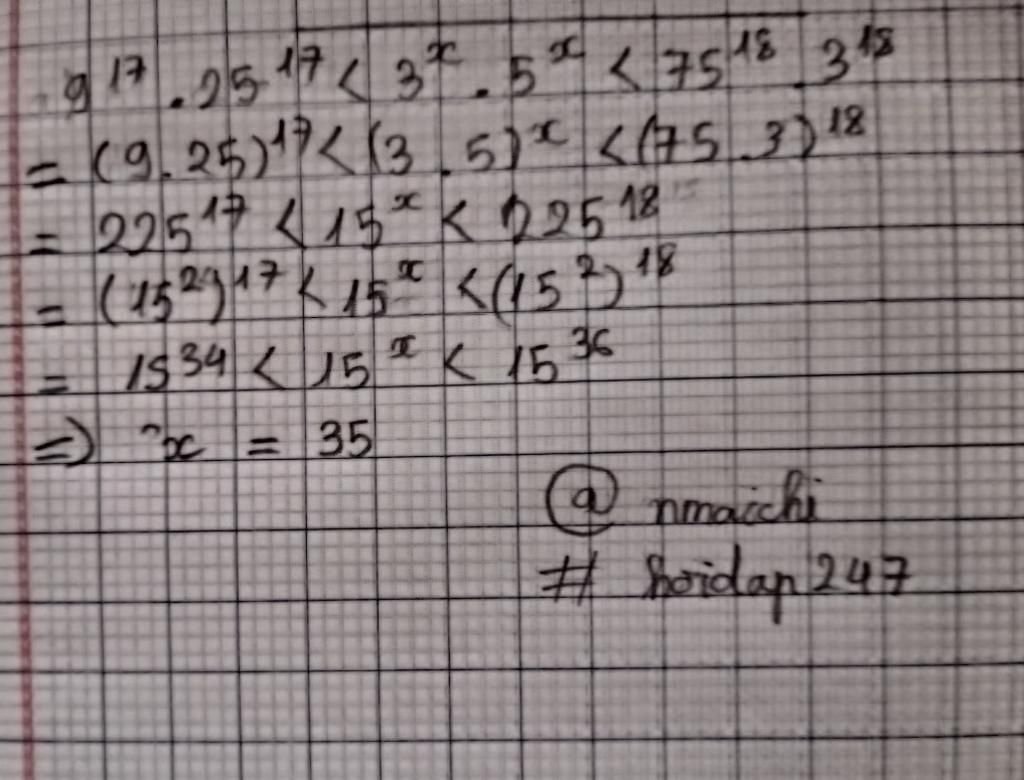 9¹⁷ . 25¹⁷ < 3ˣ . 5ˣ < 75¹⁸ . 3¹⁸
= (9 . 25)¹⁷ < (3 . 5)ˣ < (75 . 3)¹⁸
= 225¹⁷ < 15ˣ < 225¹⁸
= (15²)¹⁷ < 15ˣ < (15²)¹⁸
= 15³⁴ < 15ˣ < 15³⁶
=> x = 35
@ nmaichi
# hoidap 247